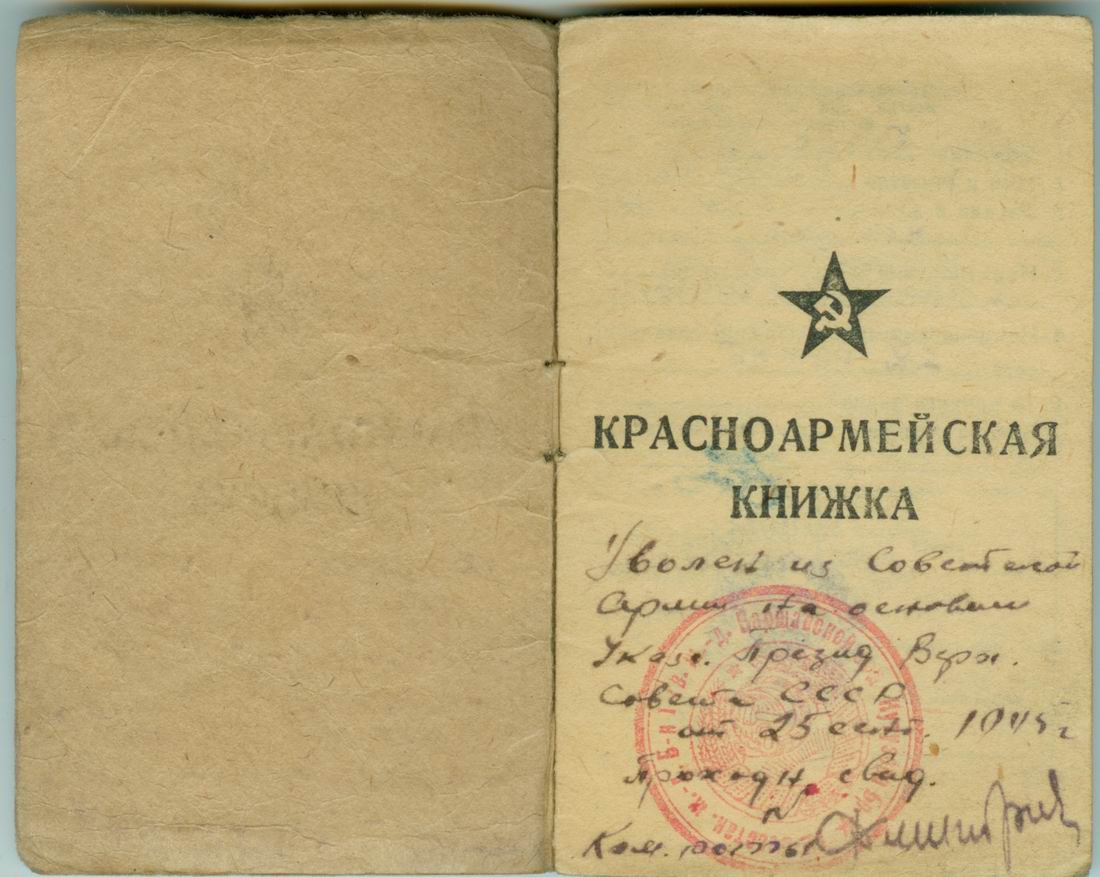 КРАСНОАРМЕЙСКАЯ
КНИЖКА
Уволен из Советской
Армии на основании
Указ. Презид Верх.
Совета СССР
от 25 сент. 1945 г
проходн. свид.
№
Ком. роты
Варшавской